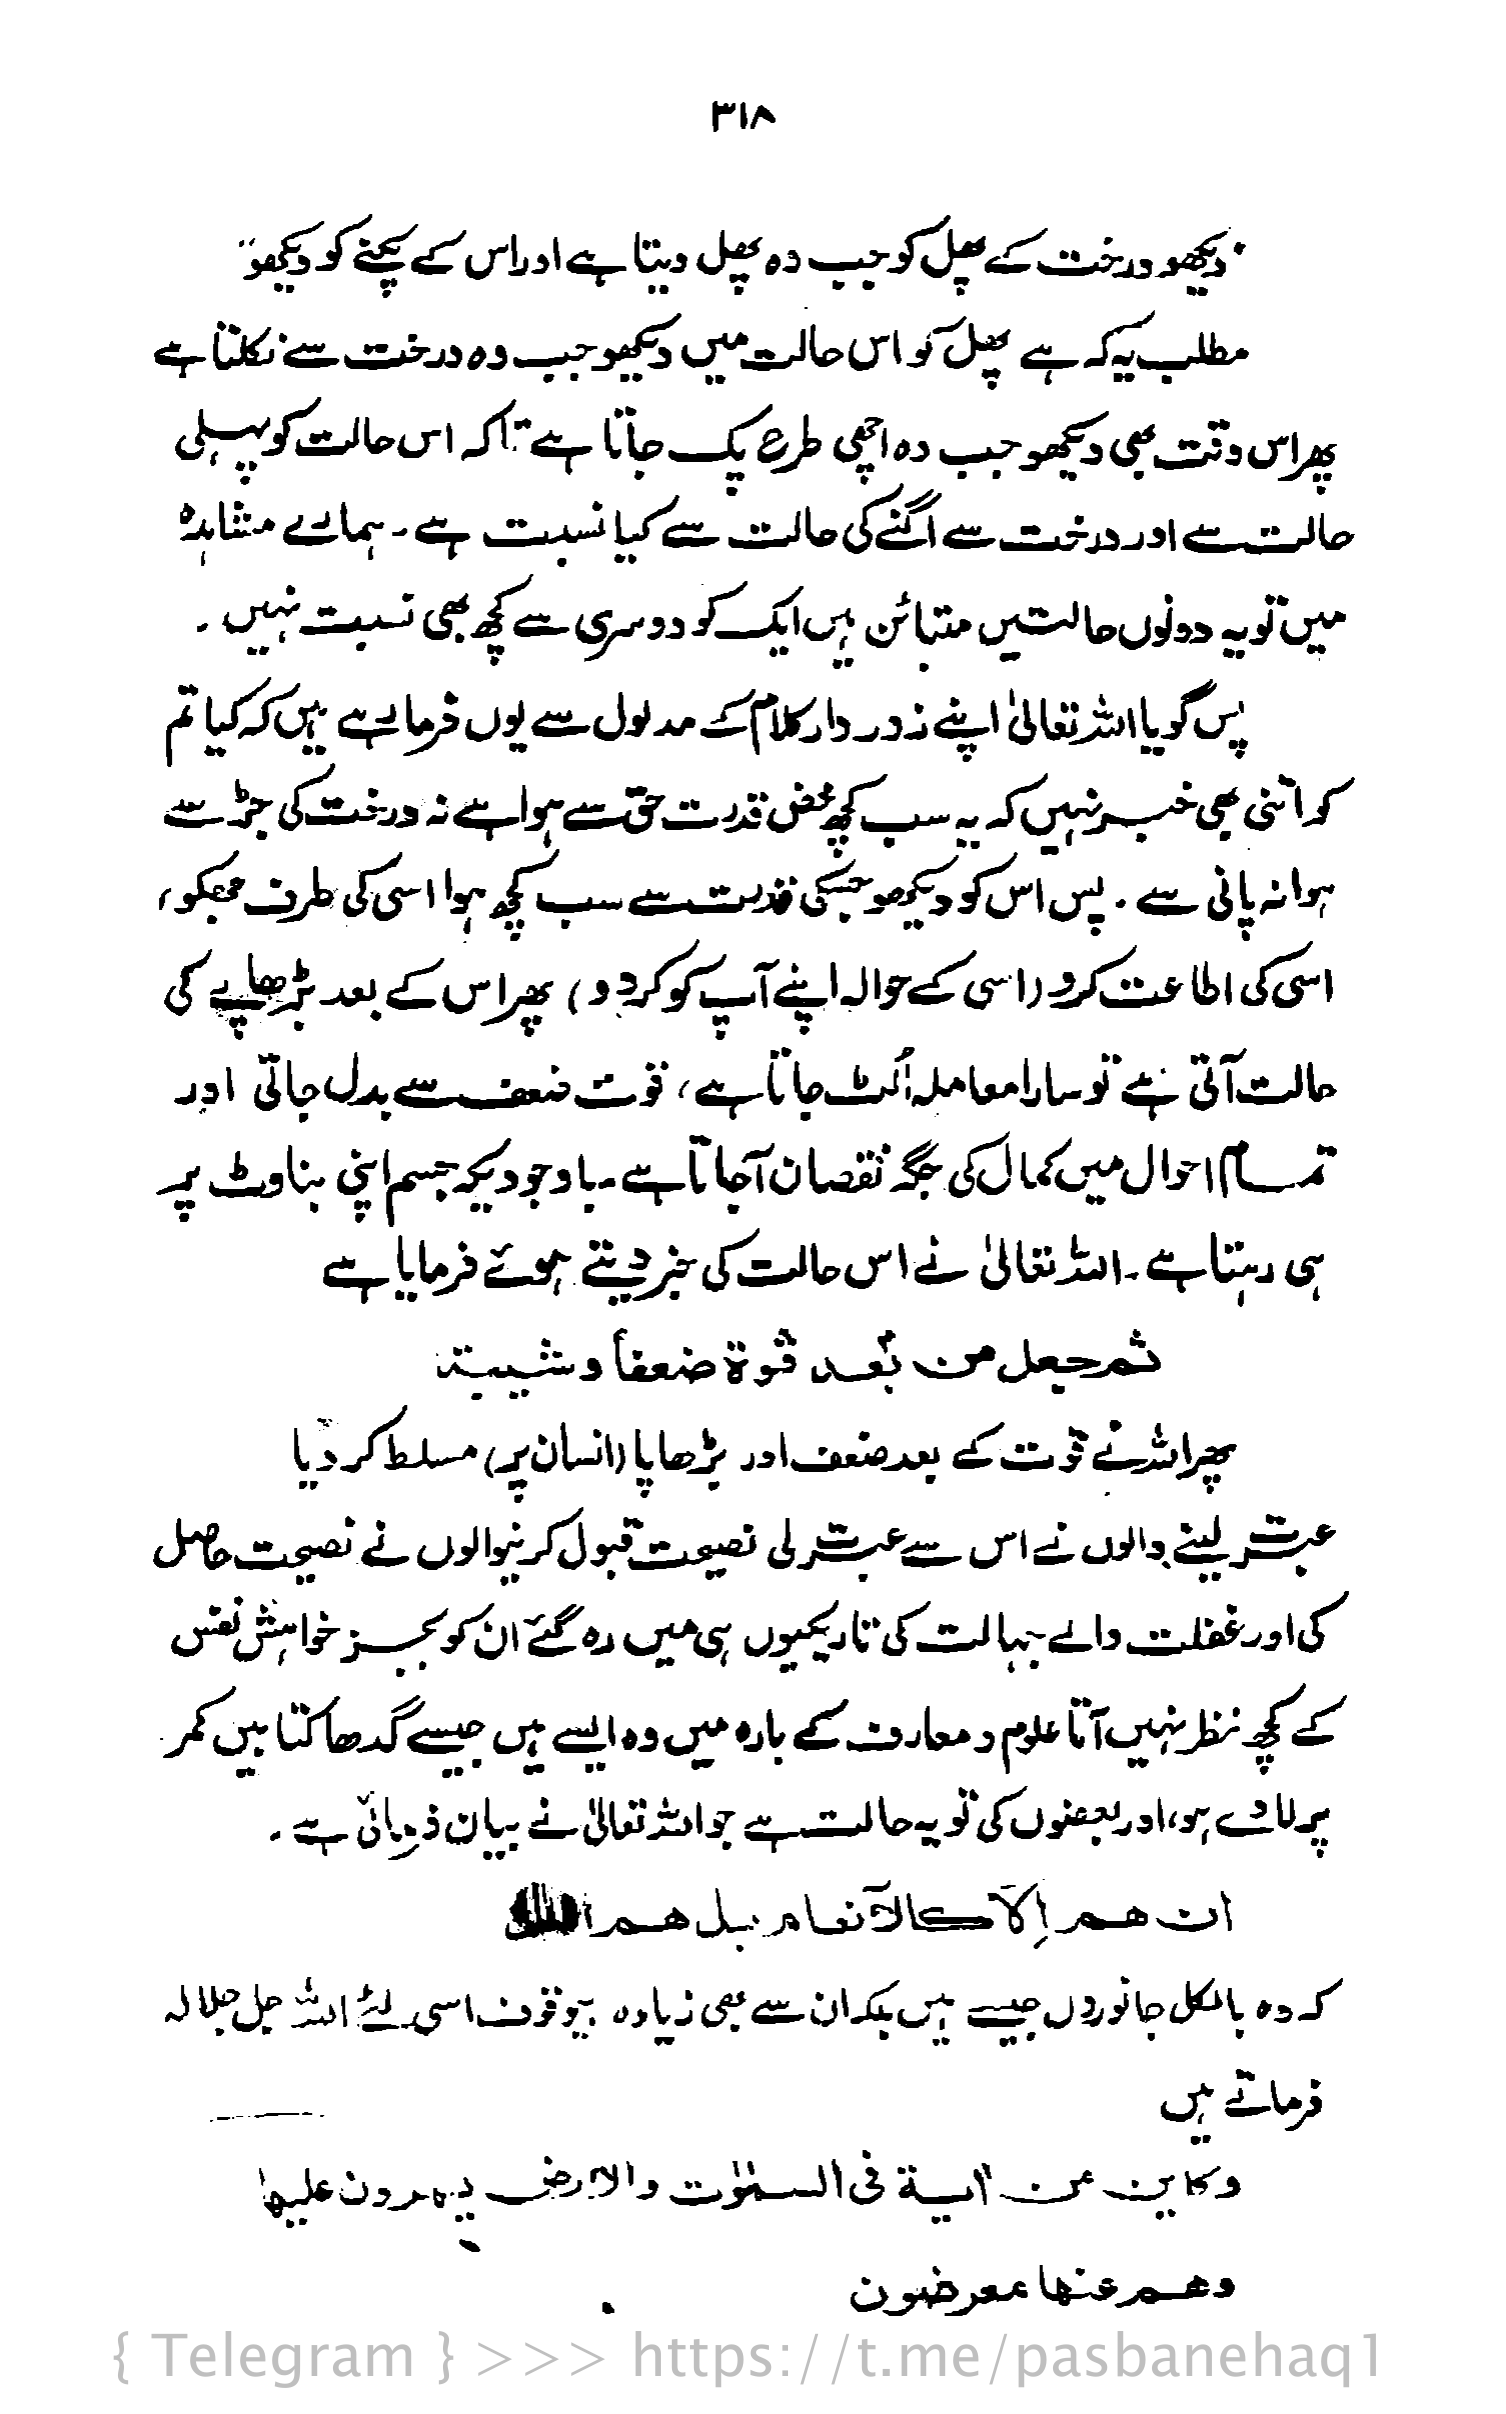 ۳۱۸
"دیکھو درخت کے پھل کو جب وہ پھل دیتا ہے اور اس کے پکنے کو دیکھو"
مطلب یہ کہ ہے پھل کو اس حالت میں دیکھو جب وہ درخت سے نکلتا ہے
پھر اس وقت بھی دیکھو جب وہ اچھی طرح پک جاتا ہے تاکہ اس حالت کو پہلی
حالت سے اور درخت سے اگنے کی حالت سے کیا نسبت ہے۔ ہمارے مشاہدہ
میں تو یہ دونوں حالتیں متبائن ہیں ایک کو دوسری سے کچھ بھی نسبت نہیں۔
پس گویا اللہ تعالیٰ اپنے زوردار کلام کے مدلول سے یوں فرما رہے ہیں کہ کیا تم
کو اتنی بھی خبر نہیں کہ یہ سب کچھ محض قدرت حق سے ہوا ہے نہ درخت کی جڑ سے
ہوا نہ پانی سے۔ پس اس کو دیکھو جسکی قدرت سے سب کچھ ہوا اسی کی طرف جھکو،
اسی کی اطاعت کرو (اسی کے حوالہ اپنے آپ کو کردو) پھر اس کے بعد بڑھاپے کی
حالت آتی ہے تو سارا معاملہ اُلٹ جاتا ہے، قوت ضعف سے بدل جاتی اور
تمام احوال میں کمال کی جگہ نقصان آجاتا ہے۔ باوجودیکہ جسم اپنی بناوٹ پر
ہی رہتا ہے۔ اللہ تعالیٰ نے اس حالت کی خبر دیتے ہوئے فرمایا ہے
ثم جعل من بعد قوة ضعفاً و شیبة
پھر اللہ نے قوت کے بعد ضعف اور بڑھاپا (انسان پر) مسلط کر دیا
عبرت لینے والوں نے اس سے عبرت لی نصیحت قبول کرنیوالوں نے نصیحت حاصل
کی اور غفلت والے جہالت کی تاریکیوں ہی میں رہ گئے ان کو بجز خواہش نفس
کے کچھ نظر نہیں آتا علوم و معارف کے بارہ میں وہ ایسے ہیں جیسے گدھا کتابیں کمر
پر لادے ہو، اور بعضوں کی تو یہ حالت ہے جو اللہ تعالیٰ نے بیان فرمائی ہے۔
ان هم اِلَّا کالانعام بل هم
کہ وہ بالکل جانوروں جیسے ہیں بلکہ ان سے بھی زیادہ بیوقوف اسی لئے اللہ جل جلالہ
فرماتے ہیں
وکاین من اٰیة فی السمٰوٰت والارض یمرون علیها
وهم عنها معرضون
{ Telegram } >>> https://t.me/pasbanehaq1